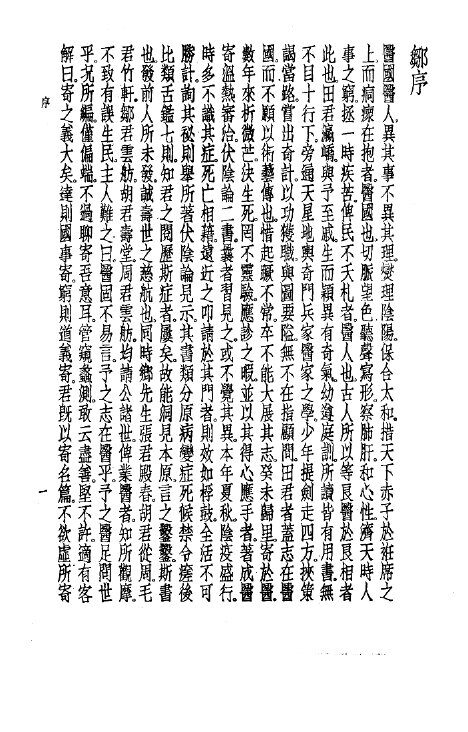 鄒序
醫國醫人。異其事不異其理。燮理陰陽。保合太和。措天下赤子於袵席之
上。而痌瘝在抱者。醫國也。切脈望色。聽聲寫形。察肺肝。和心性。濟天時人
事之窮。拯一時疾苦。俾民不夭札者。醫人也。古人所以等良醫於良相者
此也。田君瀛嶠。與予至戚。生而穎異有奇氣。幼遵庭訓。所讀皆有用書。無
不目十行下。旁通天星地輿奇門兵家醫家之學。少年提劍走四方。挾策
謁當路。嘗出奇計。以功獲職。輿圖要隘。無不在指顧間。田君者。蓋志在醫
國。而不願以術藝傳也。惜起蹶不常。卒不能大展其志。癸未歸里。寄於醫。
數年來。析微芒。決生死。罔不靈驗。應診之暇。並以其得心應手者。著成醫
寄溫熱審治伏陰論二書。曩者習見之。或不覺其異。本年夏秋。陰疫盛行。
時多不識其症。死亡相藉。遠近之叩請於其門者。則效如桴鼓。全活不可
勝計。詢其秘。則舉所著伏陰論見示。其書類分原病變症死候禁令瘥後
比類舌鑑七則。知君之閱歷斯症者屢矣。故能洞見本原。言之鑿鑿。斯書
也。發前人所未發。誠壽世之慈航也。同時鄉先生張君殿春。胡君從周。毛
君竹軒。鄒君雲舫。胡君壽堂。周君雲舫。均請公諸世。俾業醫者。知所觀摩。
不致有誤生民。主人難之曰。醫固不易言。予之志在醫乎。予之醫足問世
乎。况所編僅偏端。不過聊寄吾意耳。管窺蠡測。敢云盡善。堅不許。適有客
解曰。寄之義大矣。達則國事寄。窮則道義寄。君旣以寄名篇。不欲虛所寄
序
一